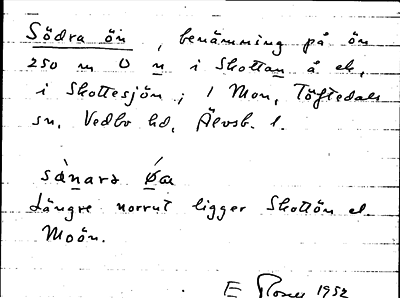 Södra ön, benämning på ön
250 m O n i Skottan å el.
i Skottesjön; 1 Mon, Töftedals
sn. Vedbo hd, Älvsb. l.
Längre norrut ligger Skottön el.
Moön.
E 1952